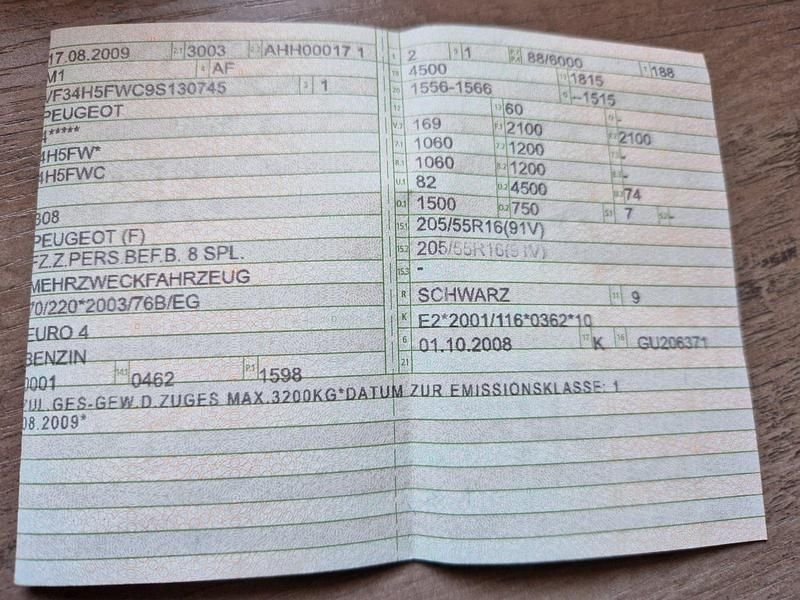 17.08.2009 2.1 3003 2.2 AHH00017 1
M1 4 AF
VF34H5FWC9S130745 3 1
PEUGEOT
4*****
4H5FW*
4H5FWC
308
PEUGEOT (F)
FZ.Z.PERS.BEF.B. 8 SPL.
MEHRZWECKFAHRZEUG
70/220*2003/76B/EG
EURO 4
BENZIN
0001 14.1 0462 P.1 1598
L 2 9 1 P.2 P.4 88/6000 T 188
18 4500 19 1815
20 1556-1566 G --1515
12 - 13 60 Q -
V.7 169 F.1 2100 F.2 2100
7.1 1060 7.2 1200 7.3 -
8.1 1060 8.2 1200 8.3 -
U.1 82 U.2 4500 U.3 74
O.1 1500 O.2 750 S.1 7 S.2 -
15.1 205/55R16(91V)
15.2 205/55R16(91V)
15.3 -
R SCHWARZ 11 9
K E2*2001/116*0362*10
6 01.10.2008 17 K 16 GU206371
21
ZUL.GES-GEW.D.ZUGES MAX.3200KG*DATUM ZUR EMISSIONSKLASSE: 1
08.2009*